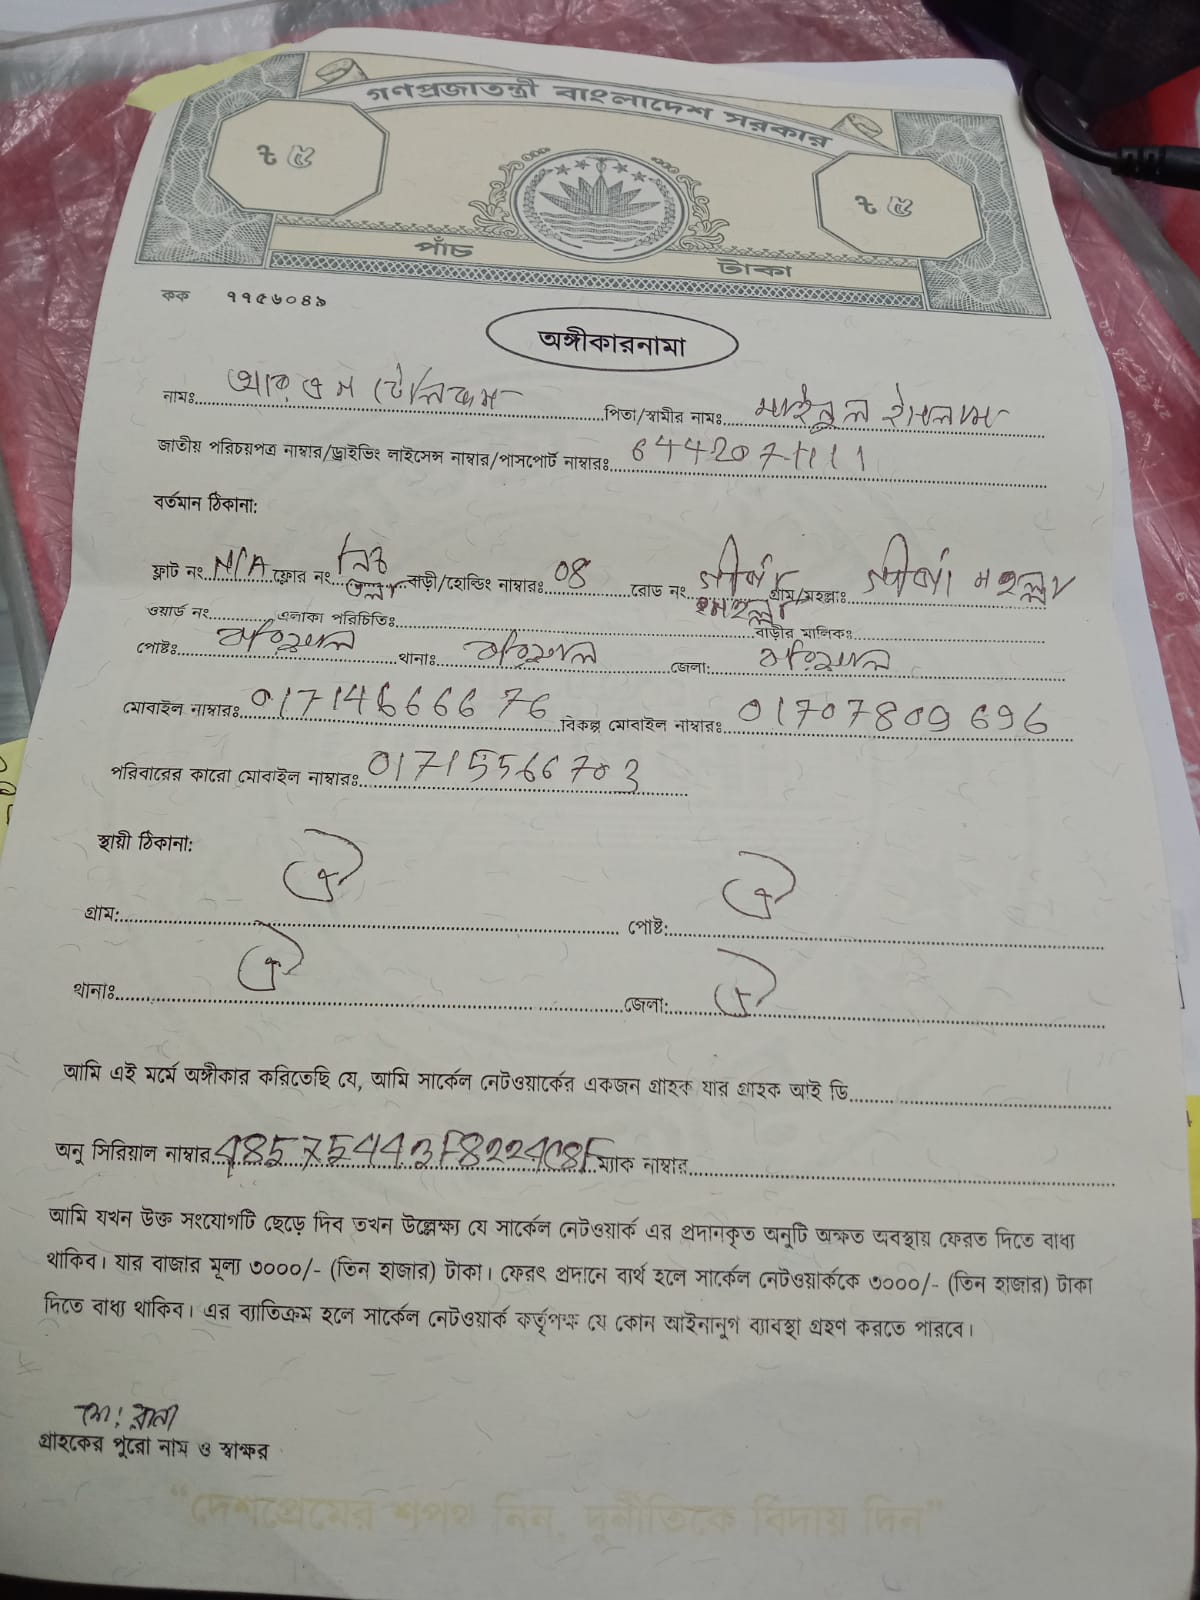 গণপ্রজাতন্ত্রী বাংলাদেশ সরকার
৳ ৫ ৳ ৫
পাঁচ টাকা
কক ৭৭৫৬০৪৯
অঙ্গীকারনামা
নামঃ আর এম টেলিকম পিতা/স্বামীর নামঃ মাইনুল ইসলাম
জাতীয় পরিচয়পত্র নাম্বার/ড্রাইভিং লাইসেন্স নাম্বার/পাসপোর্ট নাম্বারঃ 6442071111
বর্তমান ঠিকানা:
ফ্লাট নং N/A ফ্লোর নং নিচ তলা বাড়ী/হোল্ডিং নাম্বারঃ 08 রোড নং মহল্লা গ্রাম/মহল্লঃ মহল্লা
ওয়ার্ড নং এলাকা পরিচিতিঃ বাড়ীর মালিকঃ
পোষ্টঃ বরিশাল থানাঃ বরিশাল জেলা: বরিশাল
মোবাইল নাম্বারঃ 01714666676 বিকল্প মোবাইল নাম্বারঃ 01707809696
পরিবারের কারো মোবাইল নাম্বারঃ 01715566703
স্থায়ী ঠিকানা:
গ্রাম: ঐ পোষ্ট: ঐ
থানাঃ ঐ জেলা: ঐ
আমি এই মর্মে অঙ্গীকার করিতেছি যে, আমি সার্কেল নেটওয়ার্কের একজন গ্রাহক যার গ্রাহক আই ডি
অনু সিরিয়াল নাম্বার 485754431F8224C8F ম্যাক নাম্বার
আমি যখন উক্ত সংযোগটি ছেড়ে দিব তখন উল্লেক্ষ্য যে সার্কেল নেটওয়ার্ক এর প্রদানকৃত অনুটি অক্ষত অবস্থায় ফেরত দিতে বাধ্য
থাকিব। যার বাজার মূল্য ৩০০০/- (তিন হাজার) টাকা। ফেরৎ প্রদানে ব্যর্থ হলে সার্কেল নেটওয়ার্ককে ৩০০০/- (তিন হাজার) টাকা
দিতে বাধ্য থাকিব। এর ব্যাতিক্রম হলে সার্কেল নেটওয়ার্ক কর্তৃপক্ষ যে কোন আইনানুগ ব্যাবস্থা গ্রহণ করতে পারবে।
মো: রানা
গ্রাহকের পুরো নাম ও স্বাক্ষর
"দেশপ্রেমের শপথ নিন, দুর্নীতিকে বিদায় দিন"